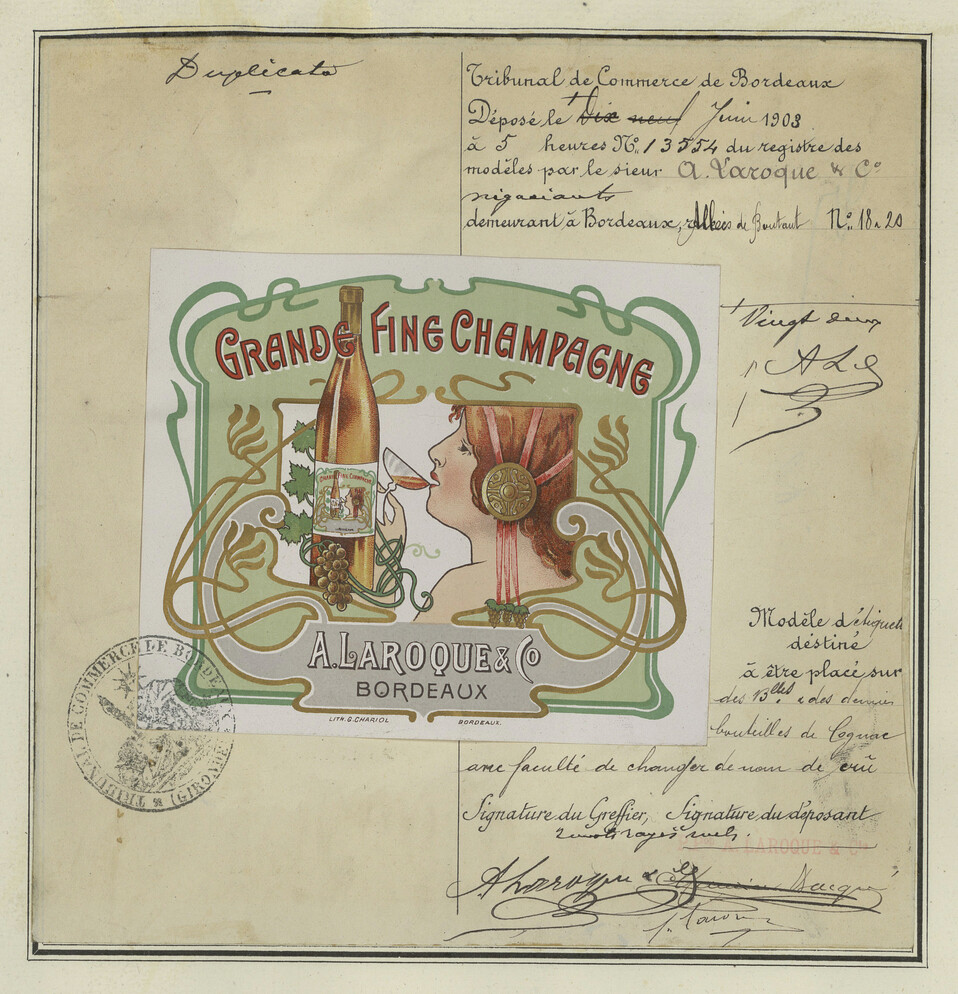 Duplicata
Tribunal de Commerce de Bordeaux
Déposé le Dix neuf Juin 1903
à 5 heures No. 13554 du registre des
modèles par le sieur A. Laroque & Co
négociants
demeurant à Bordeaux, Allées de Boutaut No. 18 - 20
Vingt deux
A L
GRANDE FINE CHAMPAGNE
GRANDE FINE CHAMPAGNE
A. LAROQUE & Co
BORDEAUX
LITH. G. CHARIOL BORDEAUX.
TRIBUNAL DE COMMERCE DE BORDEAUX (GIRONDE)
Modèle d'étiquette
déstiné
à être placé sur
des Blles & des demies
bouteilles de Cognac
avec faculté de changer de nom de crû
Signature du Greffier, Signature du déposant
2 mots rayés nuls.
A. LAROQUE & Cie
A Laroque & Cie